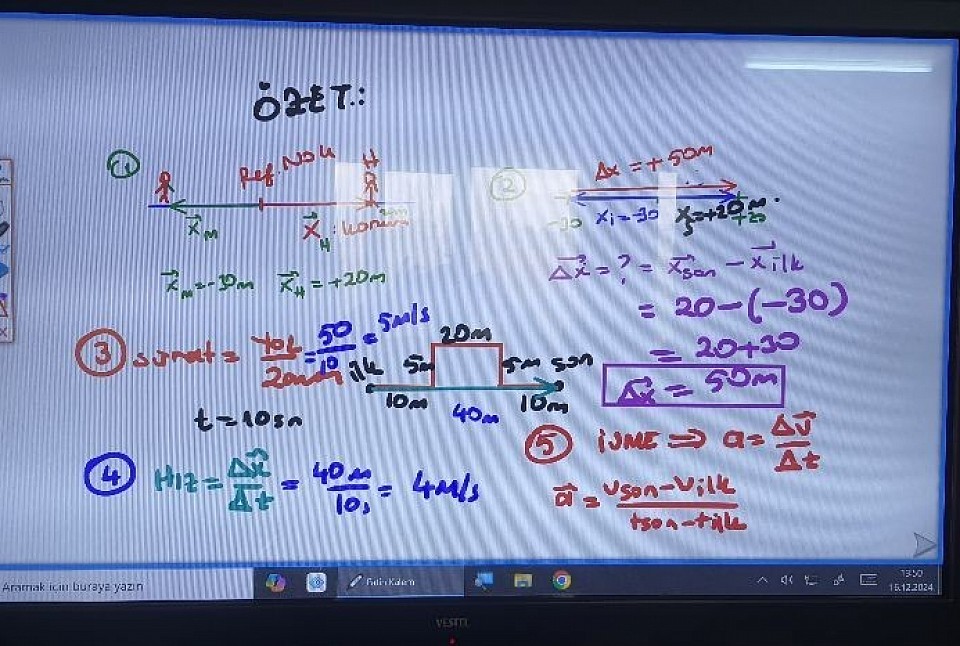 ÖZET:
1
Ref. Nok
H
X⃗M
X⃗H : konum
X⃗M = -30m X⃗H = +20m
2
Δx = +50m
-30 Xi = -30 Xs = +20m. +20
Δx⃗ = ? = X⃗son - X⃗ilk
= 20 - (-30)
= 20 + 30
Δx⃗ = 50m
3 sürat = Yol/Zaman = 50/10 = 5m/s
20m
5m 5m
ilk son
10m 40m 10m
t = 10sn
4 HIZ = Δx⃗/Δt = 40m/10s = 4m/s
5 İVME ⇒ a = Δv⃗/Δt
a⃗ = vson - vilk / tson - tilk
Aramak için buraya yazın
13:50
16.12.2024
VESTEL